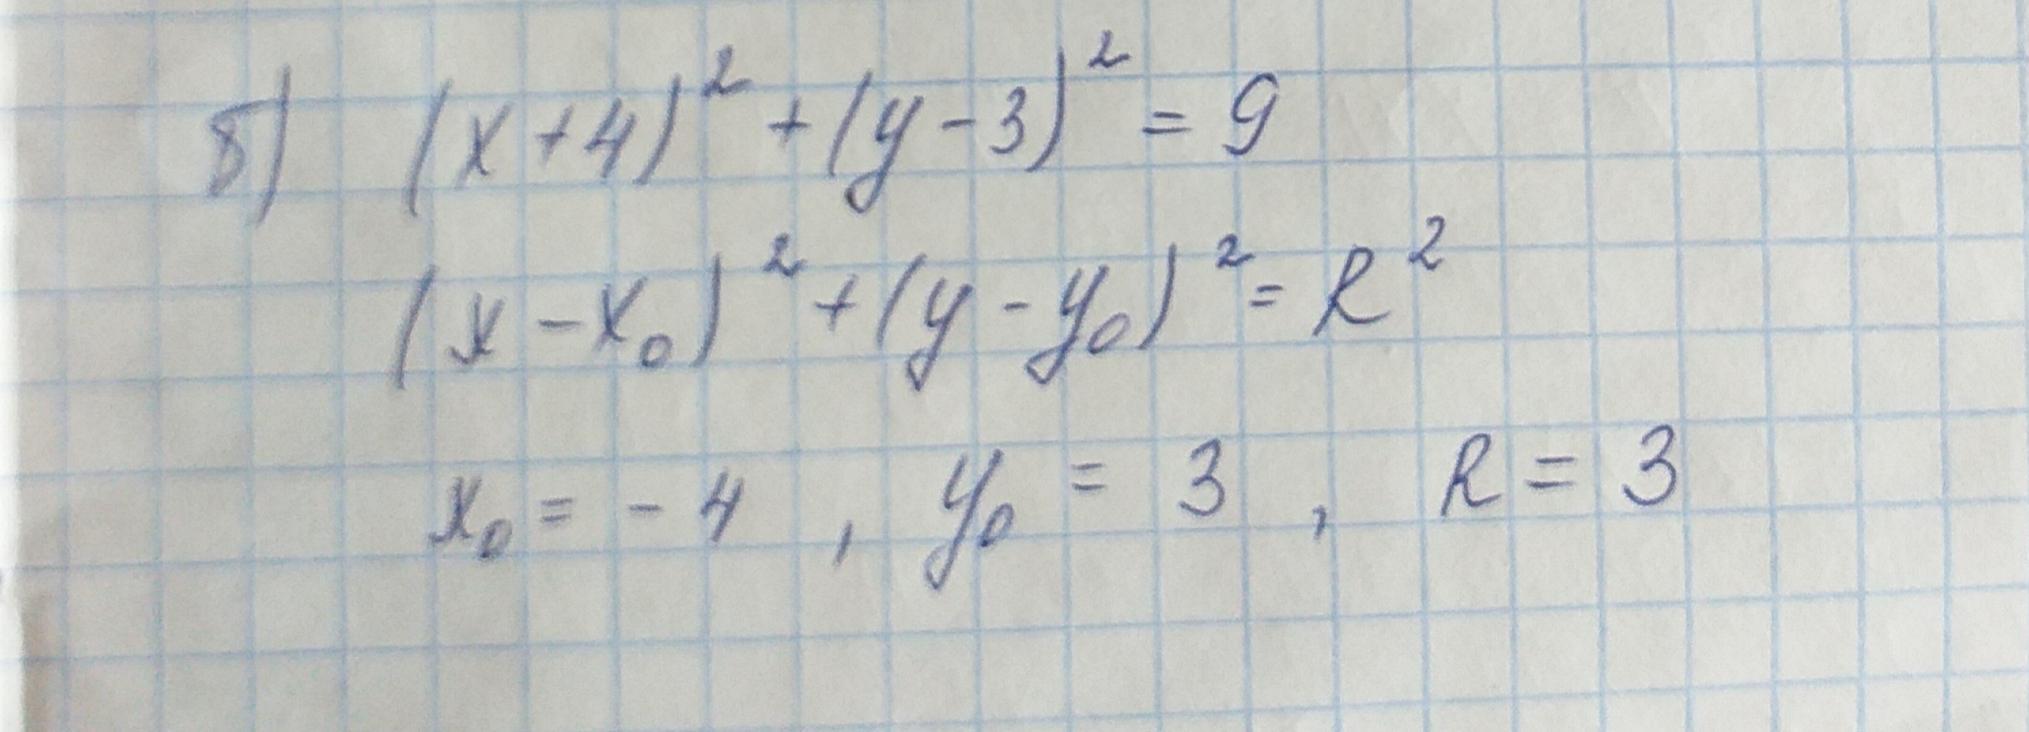 б) (x+4)² + (y-3)² = 9
(x - x₀)² + (y - y₀)² = R²
x₀ = - 4 , y₀ = 3 , R = 3